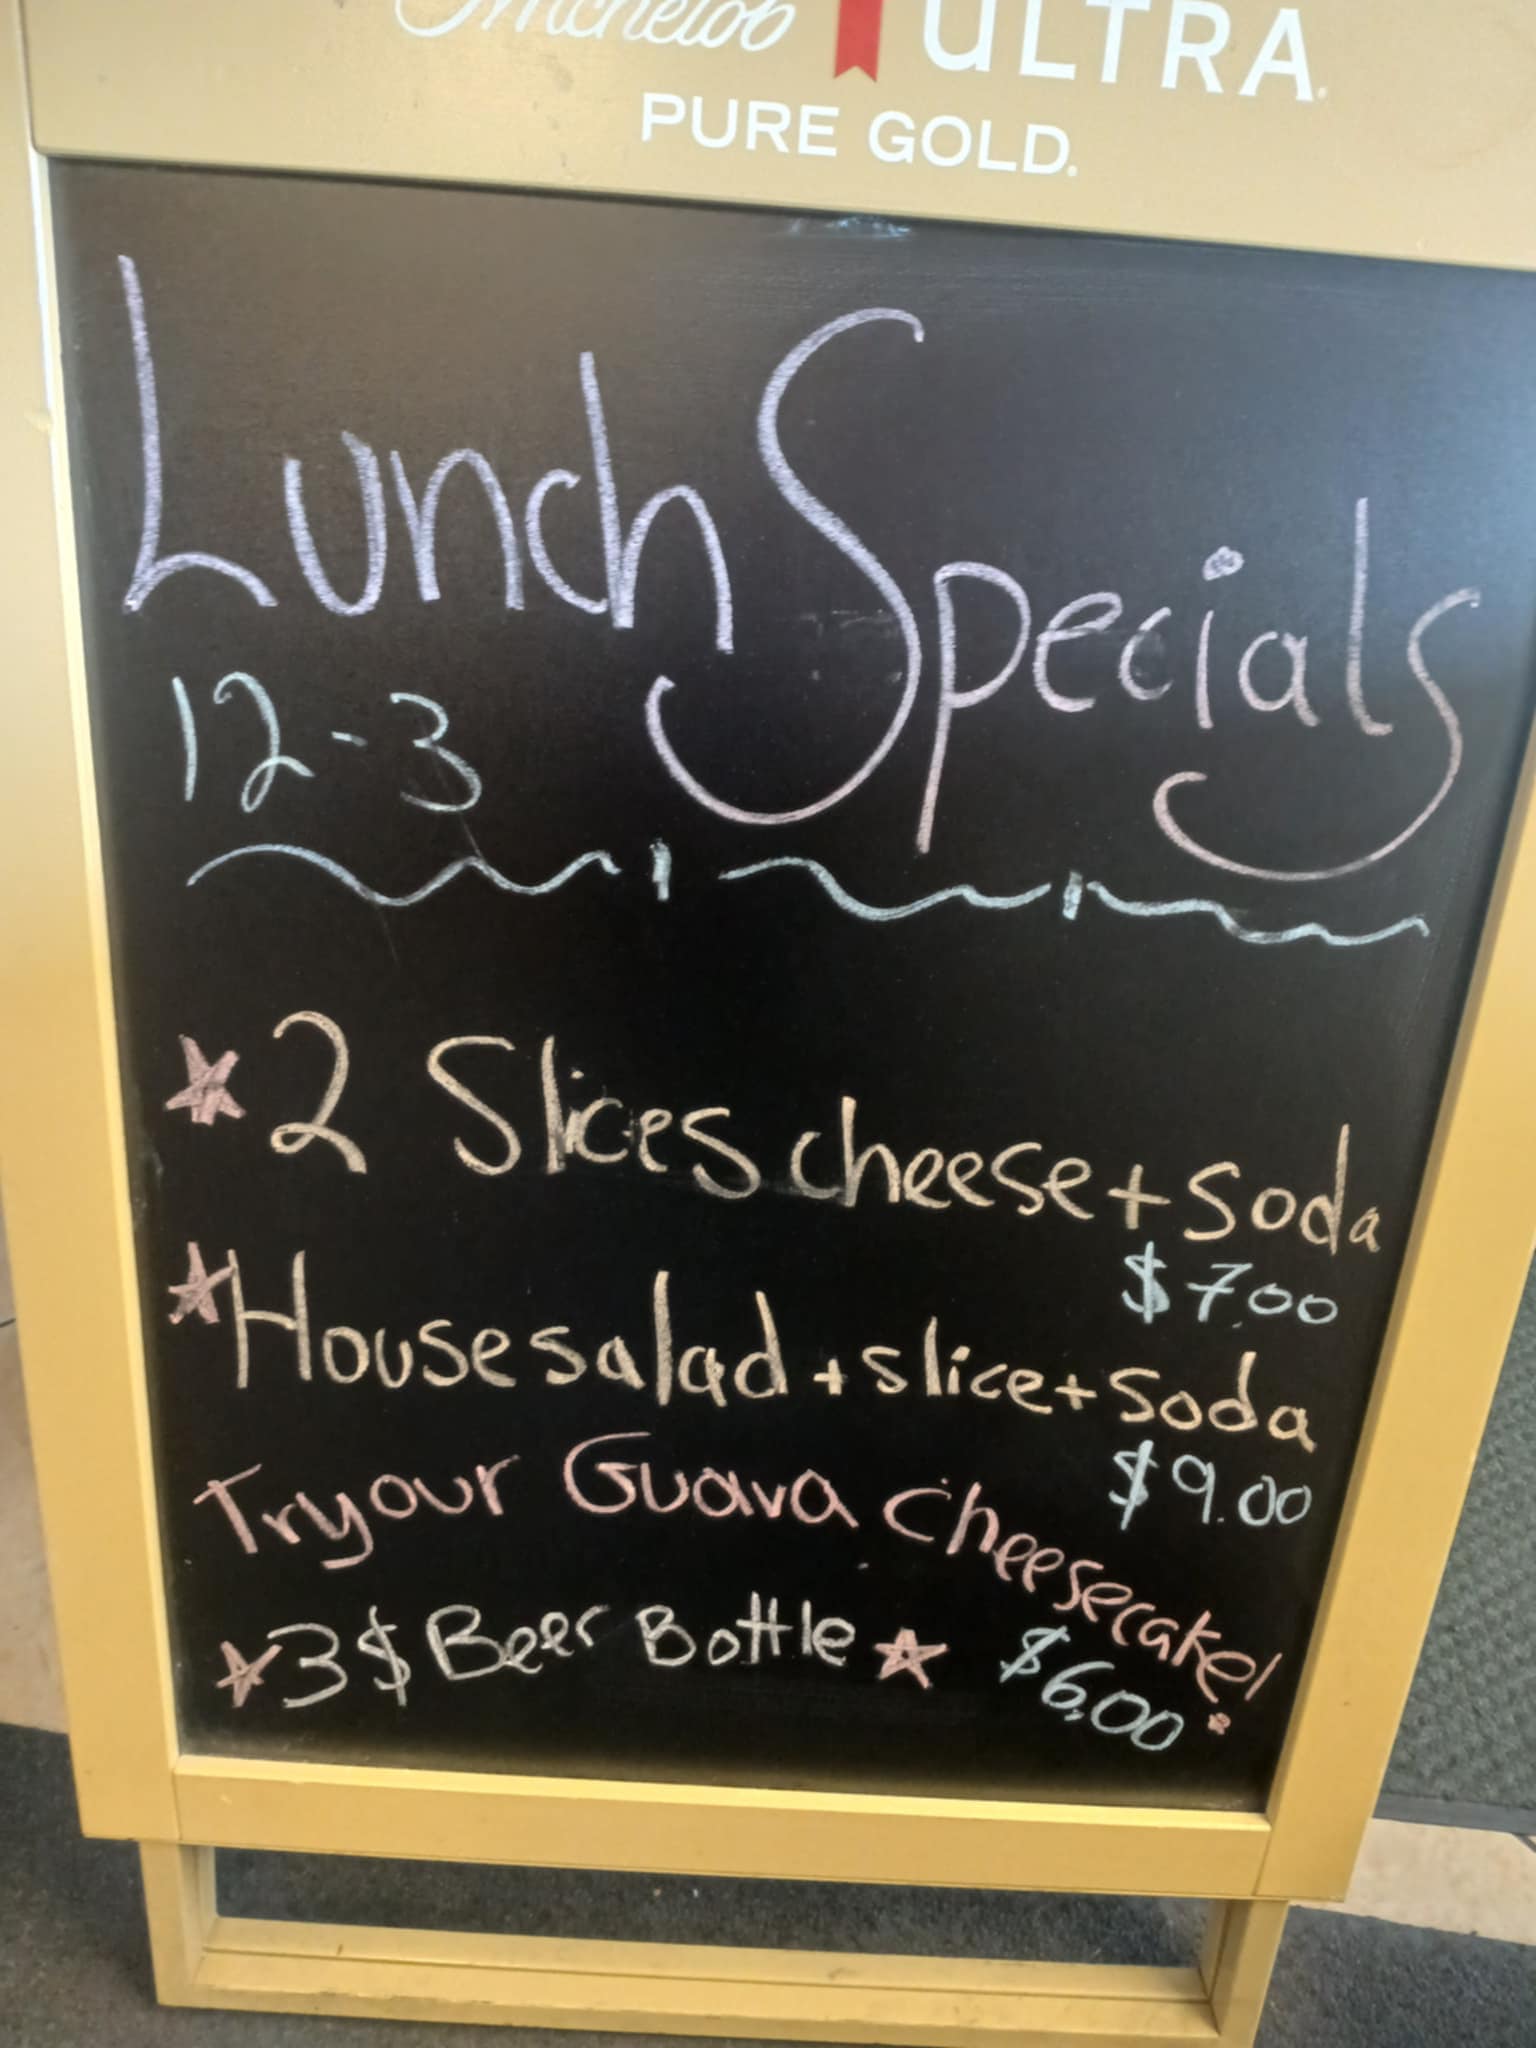 Michelob ULTRA
PURE GOLD.
Lunch Specials
12-3
2 Slices cheese + soda
$7.00
House salad + slice + soda
$9.00
Try our Guava Cheesecake!
$6.00
3$ Beer Bottle